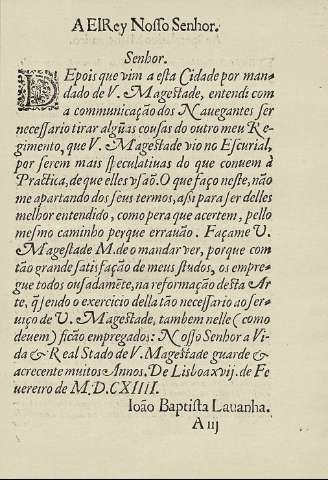 A ElRey Nosso Senhor.
Senhor.
DEpois que vim a esta Cidade por man-
dado de V. Magestade, entendi com
a communicação dos Nauegantes ser
necessario tirar algũas cousas do outro meu Re-
gimento, que V. Magestade vio no Escurial,
por serem mais speculatiuas do que conuem à
Practica, de que elles vsaõ. O que faço neste, não
me apartando dos seus termos, assi para ser delles
melhor entendido, como pera que acertem, pello
mesmo caminho perque errauão. Façame V.
Magestade M. de o mandar ver, porque com
tão grande satisfação de meus studos, os empre-
gue todos ousadamẽte, na reformação desta Ar-
te, q̃ sendo o exercicio della tão necessario ao ser-
uiço de V. Magestade, tambem nelle (como
deuem) ficão empregados: Nosso Senhor a Vi-
da & Real Stado de V. Magestade guarde &
acrecente muitos Annos. De Lisboa xvij. de Fe
uereiro de M.D.CXIIII.
Ioão Baptista Lauanha.
A iij